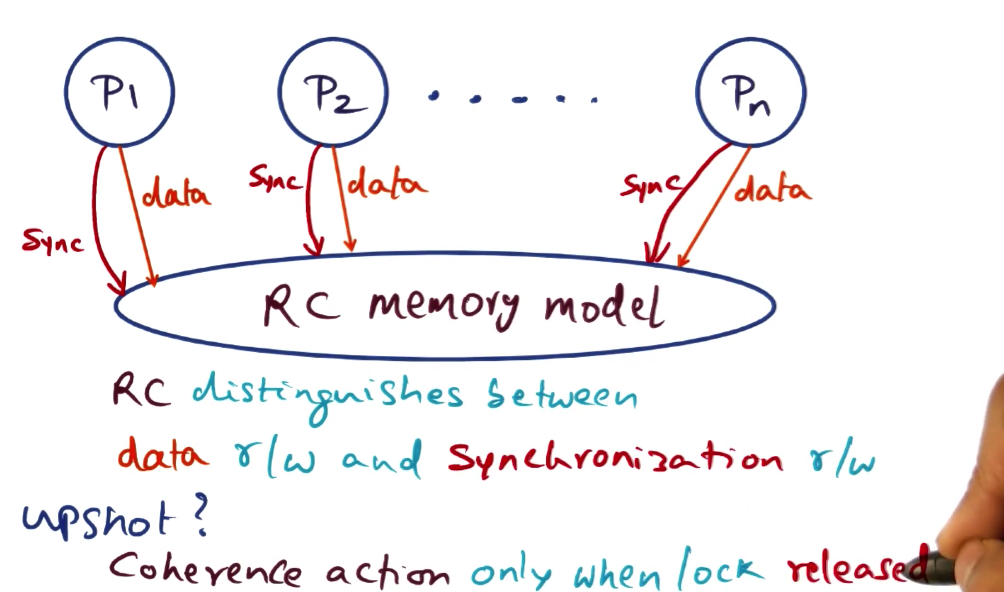 P1 P2 Pn
sync data sync data sync data
RC memory model
RC distinguishes between
data r/w and synchronization r/w
upshot?
Coherence action only when lock released